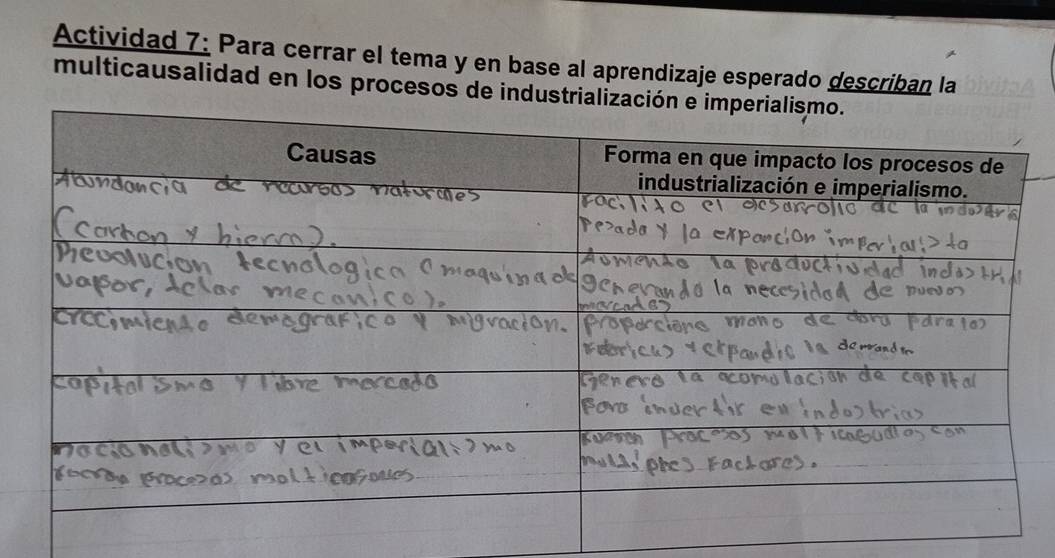 Actividad 7: Para cerrar el tema y en base al aprendizaje esperado describan la
multicausalidad en los procesos de industrialización e imperialismo.
Causas
Forma en que impacto los procesos de
industrialización e imperialismo.
Abundancia de recursos naturales
(carbon y hierro).
Facilito el desarrollo de la industria
Pesada y la expancion imperialista
Revolucion tecnologica (maquina de
vapor, telar mecanico).
Aumento la productividad industrial
generando la necesidad de nuevos
mercados
crecimiento demografico y migracion.
Proporciono mano de obra para los
fabricas y expandio la demanda
capitalismo y libre mercado
Genero la acomulacion de capital
Para invertir en industrias
nacionalismo y el imperialismo
fueron procesos multicasuales
fueron procesos multicasuales con
multiples factores.